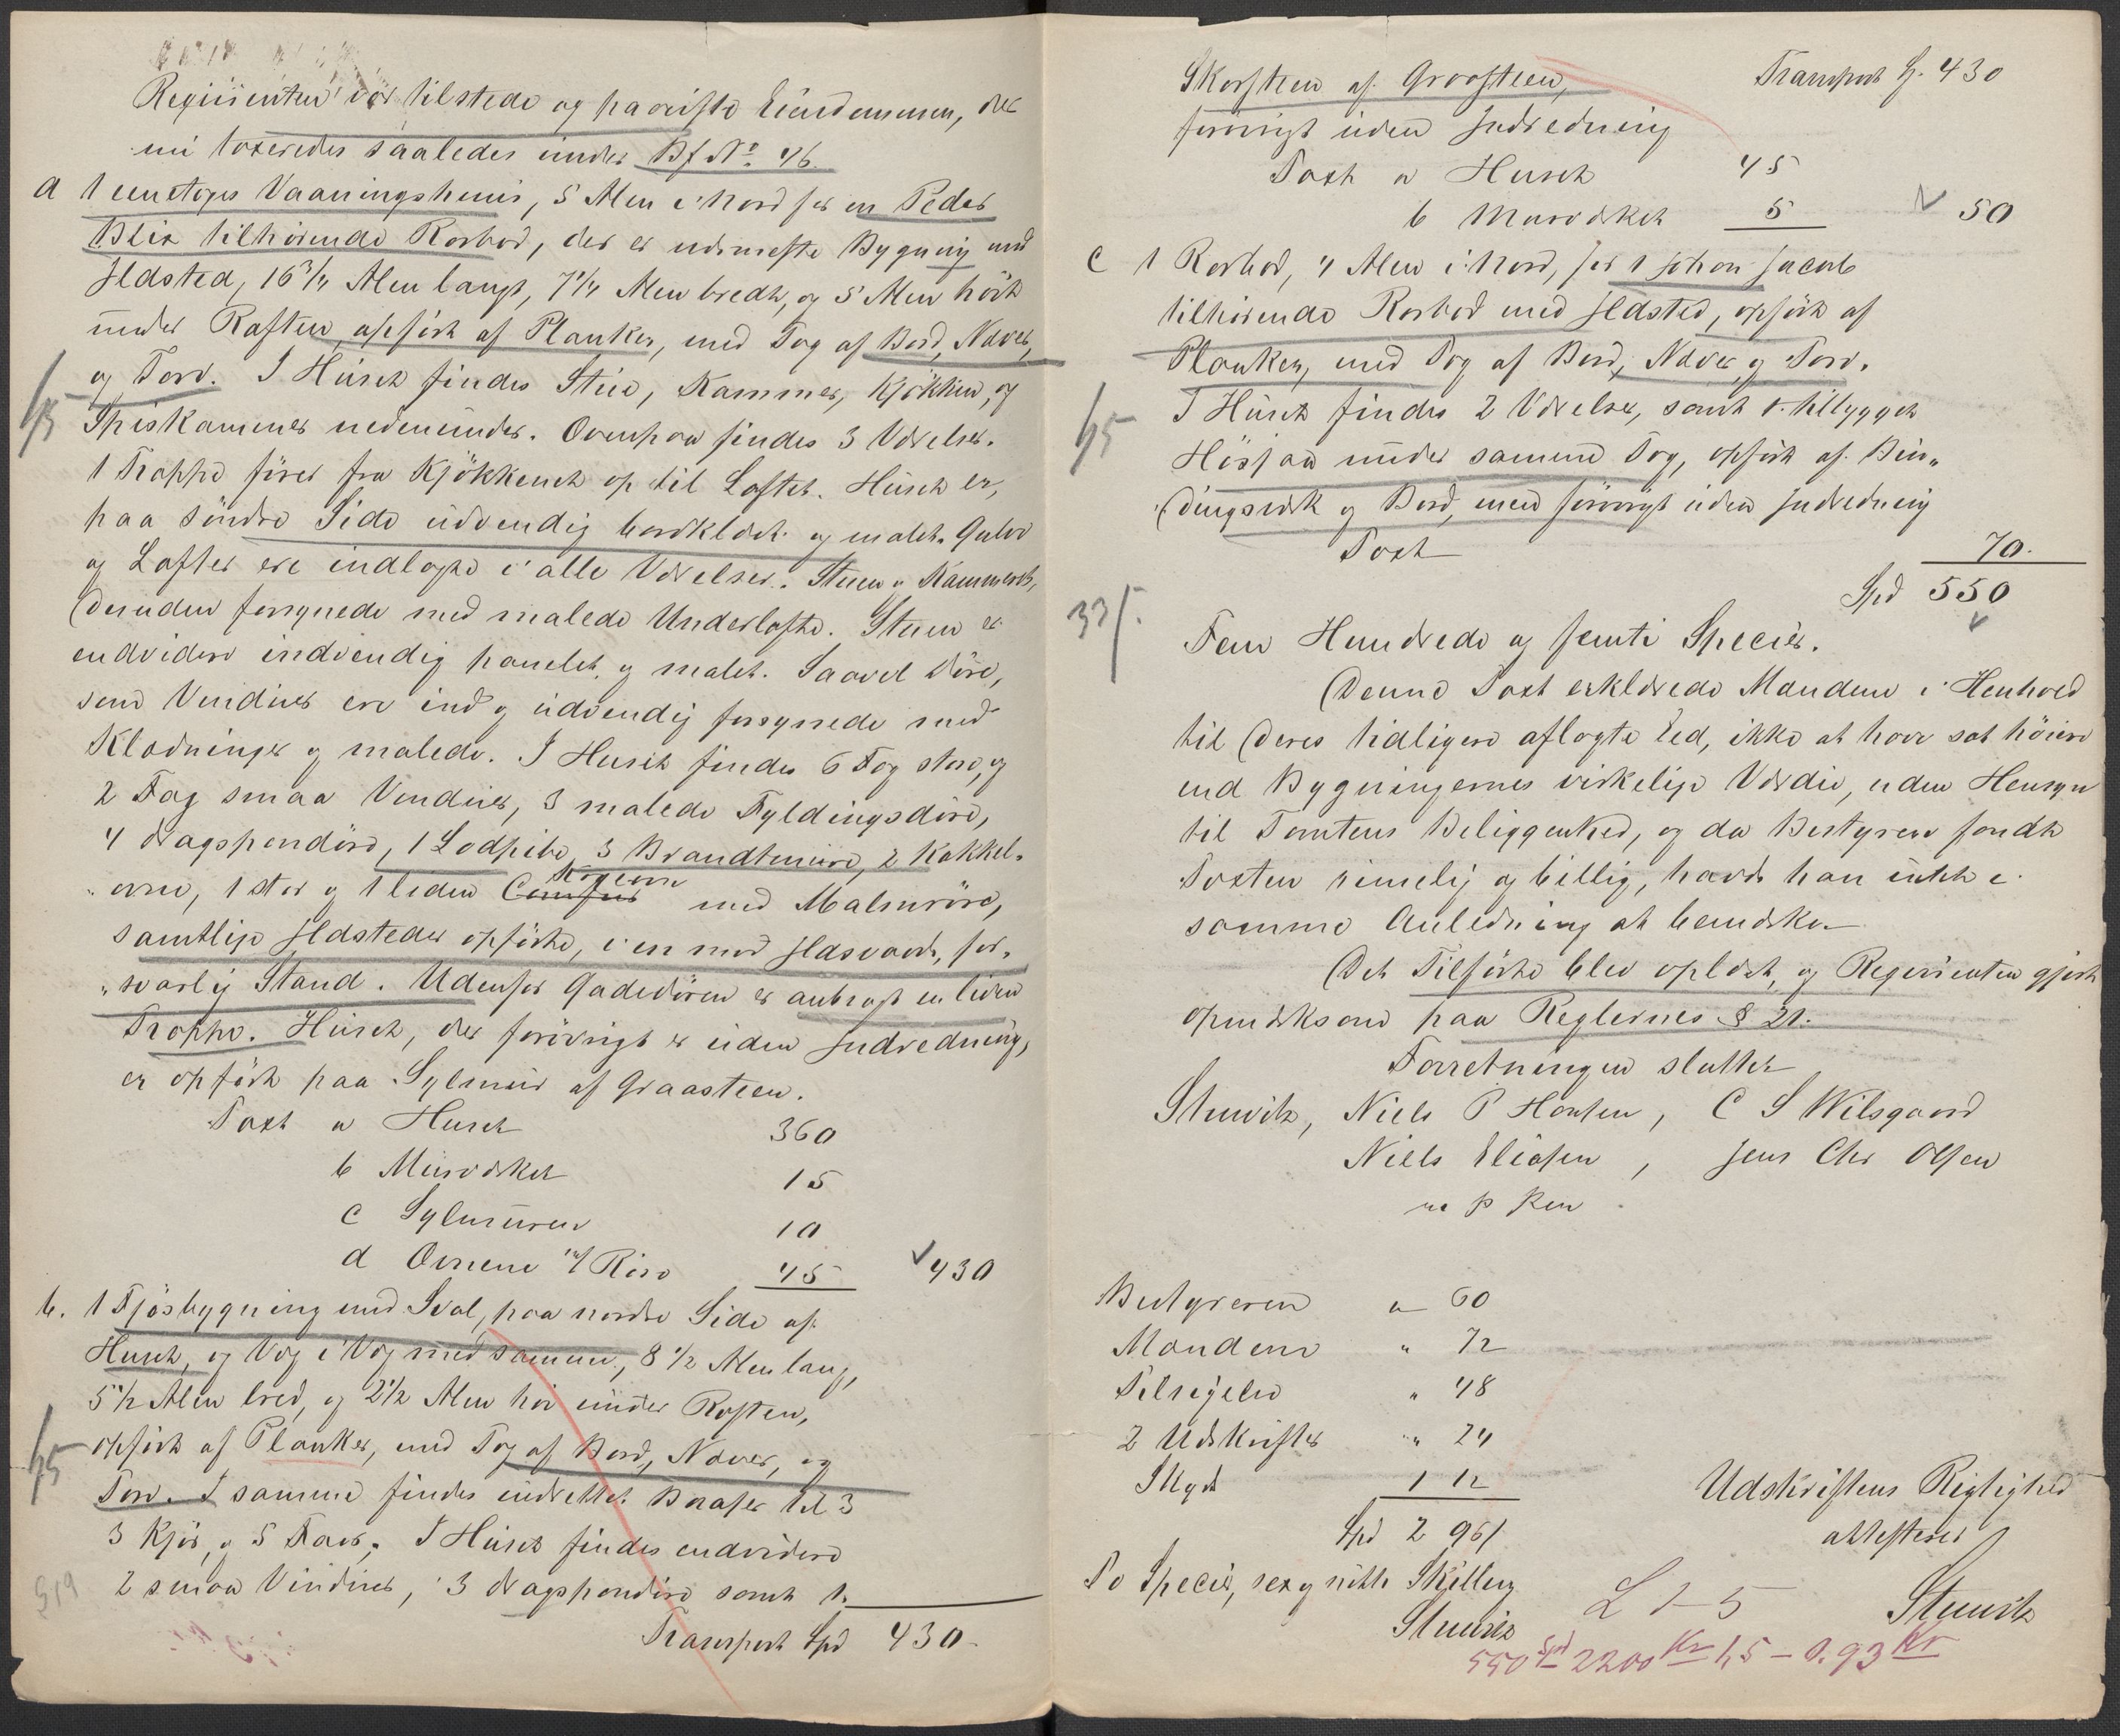 Reqvirenten var tilstede og paaviste Eiendommen, der
nu taxeredes saaledes under Bf No. 46.
a 1 eenetages Vaaningshuus, 5 Alen i Nord for en Peder
Blix tilhørende Rorbod, der er nærmeste Bygning med
Ildsted, 16 3/4 Alen langt, 7 1/4 Alen bredt, og 5 Alen høit
under Raften, opført af Planker, med Tag af Bord, Næver,
og Torv. I Huset findes Stue, Kammer, Kjøkken, og
Spiskammer nedenunder. Ovenpaa findes 3 Værelser.
1 Trappe fører fra Kjøkkenet op til Loftet. Huset er,
paa søndre Side udvendig bordklædt og malet. Gulve
og Lofter ere indlagte i alle Værelser. Stuen og Kammeret,
desuden forsynede med malede Underlofte. Stuen er
endvidere indvendig panelet og malet. Saavel Døre,
som Vinduer ere ind og udvendig forsynede med
Klædninger og malede. I Huset findes 6 Fag store, og
2 Fag smaa Vinduer, 3 malede Fyldingsdøre,
4 dragspondøre, 1 Lodpibe, 3 Brandtmure, 2 Kakkel-
ovne, 1 stor og 1 liden Comfur Kogeovn med Malmrøre,
samtlige Ildsteder opførte, i en mod Ildsvaade, for-
svarlig Stand. Udenfor Gadedøren er anbragt en liden
Trappe. Huset, der forøvrigt er uden Indredning,
er opført paa Sylmuur af Graasteen.
Taxt a Huset 360
b Murværket 15
c Sylmuren 10
d Ovnene m/ Rør 45 430
b. 1 Fjøsbygning med Sval, paa nordre Side af
Huset, og Væg i Væg med samme, 8 1/2 Alen lang,
5 1/2 Alen bred, og 2 1/2 Alen høi under Raften,
opført af Planker, med Tag af Bord, Næver, og
Torv. I samme findes indrettet Baaser til 3
3 Kjør, og 5 Faar. I Huset findes endvidere
2 smaa Vinduer, 3 dragspondøre samt 1.
Transport Spd 430.
Skorsteen af Graasteen, Transport Sp. 430
forøvrigt uden Indredning
Taxt a Huset 45
b Murværket 5 50
c 1 Rorbod, 4 Alen i Nord, for 1 Johan Jacob
tilhørende Rorbod med Ildsted, opført af
Planker, med Tag af Bord, Næver og Torv.
I Huset findes 2 Værelser, samt 1. tilbygget
Høsjaa under samme Tag, opført af Bin-
dingsværk og Bord, men forøvrigt uden Indredning
Taxt 70.
Spd 550
Fem Hundrede og femti Species.
Denne Taxt erklærede Mændene i Henhold
til deres tidligere aflagte Eed, ikke at have sat høiere
end Bygningernes virkelige Værdie, uden Hensyn
til Tomtens Beliggenhed, og da Bestyreren fandt
Taxten rimelig og billig, havde han intet i
samme Anledning at bemærke.
Det Tilførte blev oplæst, og Reqvirenten gjort
opmærksom paa Reglernes § 21.
Forretningen sluttet
Stuwitz, Niels P Hansen, C S Wilsgaard
Niels Eliasen, Jens Chr Olsen
m p Pen
Bestyreren a 60
Mændene " 72
Tilsigelse " 48
2 Udskrifter " 24
Skyds 1 12
Spd 2 96/
To Species, sex og nitti Skilling
Stuwitz
Udskriftens Rigtighed
attesterer
Stuwitz
550 Spd 2200 Kr 1,5 – 0.93 Kr